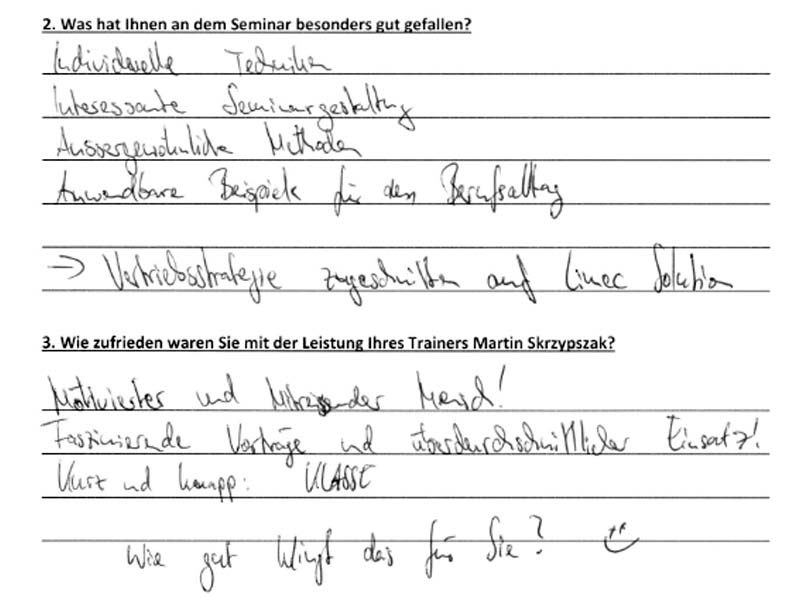 2. Was hat Ihnen an dem Seminar besonders gut gefallen?
Individuelle Techniken
Interessante Seminargestaltung
Aussergewöhnliche Methoden
Anwendbare Beispiele für den Berufsalltag
→ Vertriebsstrategie zugeschnitten auf Linec Solution
3. Wie zufrieden waren Sie mit der Leistung Ihres Trainers Martin Skrzypszak?
Motivierter und Mitreissender Mensch!
Faszinierende Vorträge und überdurchschnittlicher Einsatz!
Kurz und knapp: KLASSE
Wie gut klingt das für Sie?